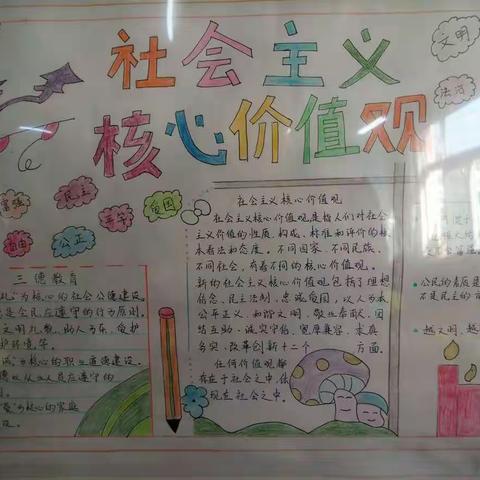 社会主义
核心价值观
文明
法治
富强
民主
爱国
自由
公正
三德教育
礼"为核心的社会公德建设。
是公民应遵守的行为原则。
文明礼貌,助人为乐,爱护
护环境等。
诚"为核心的职业道德建设。
德从业人员应遵守的
为核心的家庭
设。
社会主义核心价值观
社会主义核心价值观是指人们对社会
主义价值的性质、构成、标准和评价的根
本看法和态度。不同国家、不同民族、
不同社会,有着不同的核心价值观。
新的社会主义核心价值观包括了理想
信念,民主法制,忠诚爱国,以人为本
公平正义,和谐文明,敬业奉献,团
结互助,诚实守信,宽厚兼容,求真
务实,改革创新十二个方面。
任何价值观都
存在于社会之中,体
现在社会之中。
公民的素质是
不是民主的
越文明,越